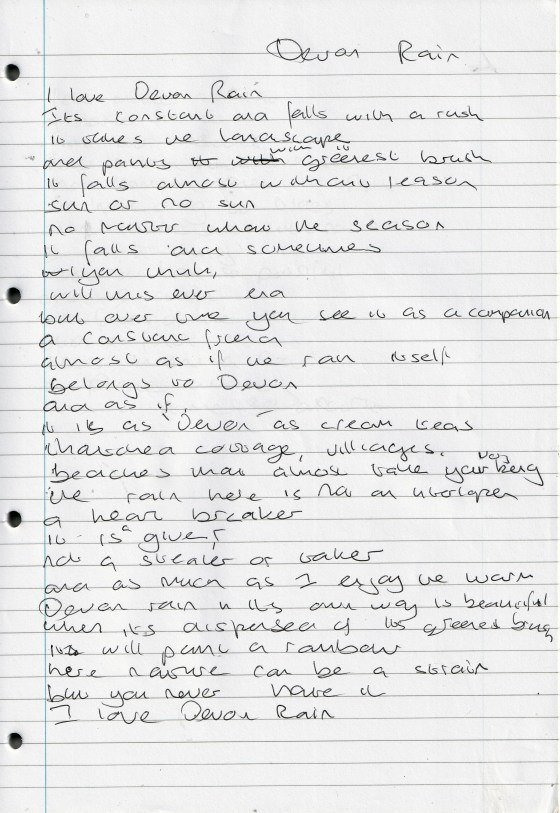 Devon Rain
I love Devon Rain
Its constant and falls with a rush
it takes the landscape
and paints it with with it greenest brush
it falls almost without reason
sun or no sun
no matter what the season
it falls and sometimes
you think,
will this ever end
but over time you see it as a companion
a constant friend
almost as if the rain itself
belongs to Devon
and as if,
it is as Devon as cream teas
thatched cottage, villages.
beaches that almost take your being
the rain here is not an interloper
a heart breaker
it is a giver
not a stealer or taker
and as much as I enjoy the warm
Devon rain in its own way is beautiful
when its dispersed of its greenest brush
it will paint a rainbow
here nature can be a strain
but you never have it
I love Devon Rain